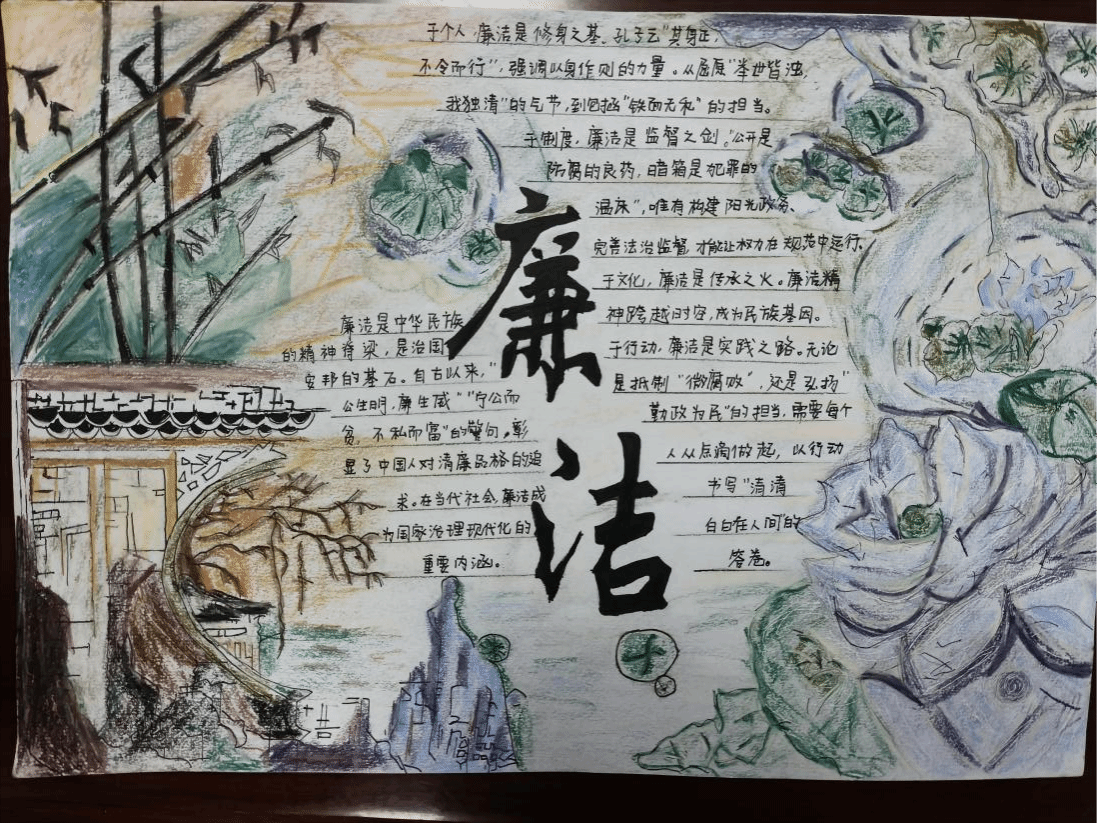 廉洁
廉洁是中华民族
的精神脊梁，是治国
安邦的基石。自古以来，"
公生明，廉生威""宁公而
贫，不私而富"的警句，彰
显了中国人对清廉品格的追
求。在当代社会，廉洁成
为国家治理现代化的
重要内涵。
于个人，廉洁是修身之基。孔子云"其身正，
不令而行"，强调以身作则的力量。从屈原"举世皆浊，
我独清"的气节，到包拯"铁面无私"的担当。
于制度，廉洁是监督之剑。"公开是
防腐的良药，暗箱是犯罪的
温床"，唯有构建阳光政务、
完善法治监督，才能让权力在规范中运行。
于文化，廉洁是传承之火。廉洁精
神跨越时空，成为民族基因。
于行动，廉洁是实践之路。无论
是抵制"微腐败"，还是弘扬"
勤政为民"的担当，需要每个
人从点滴做起，以行动
书写"清清
白白在人间"的
答卷。